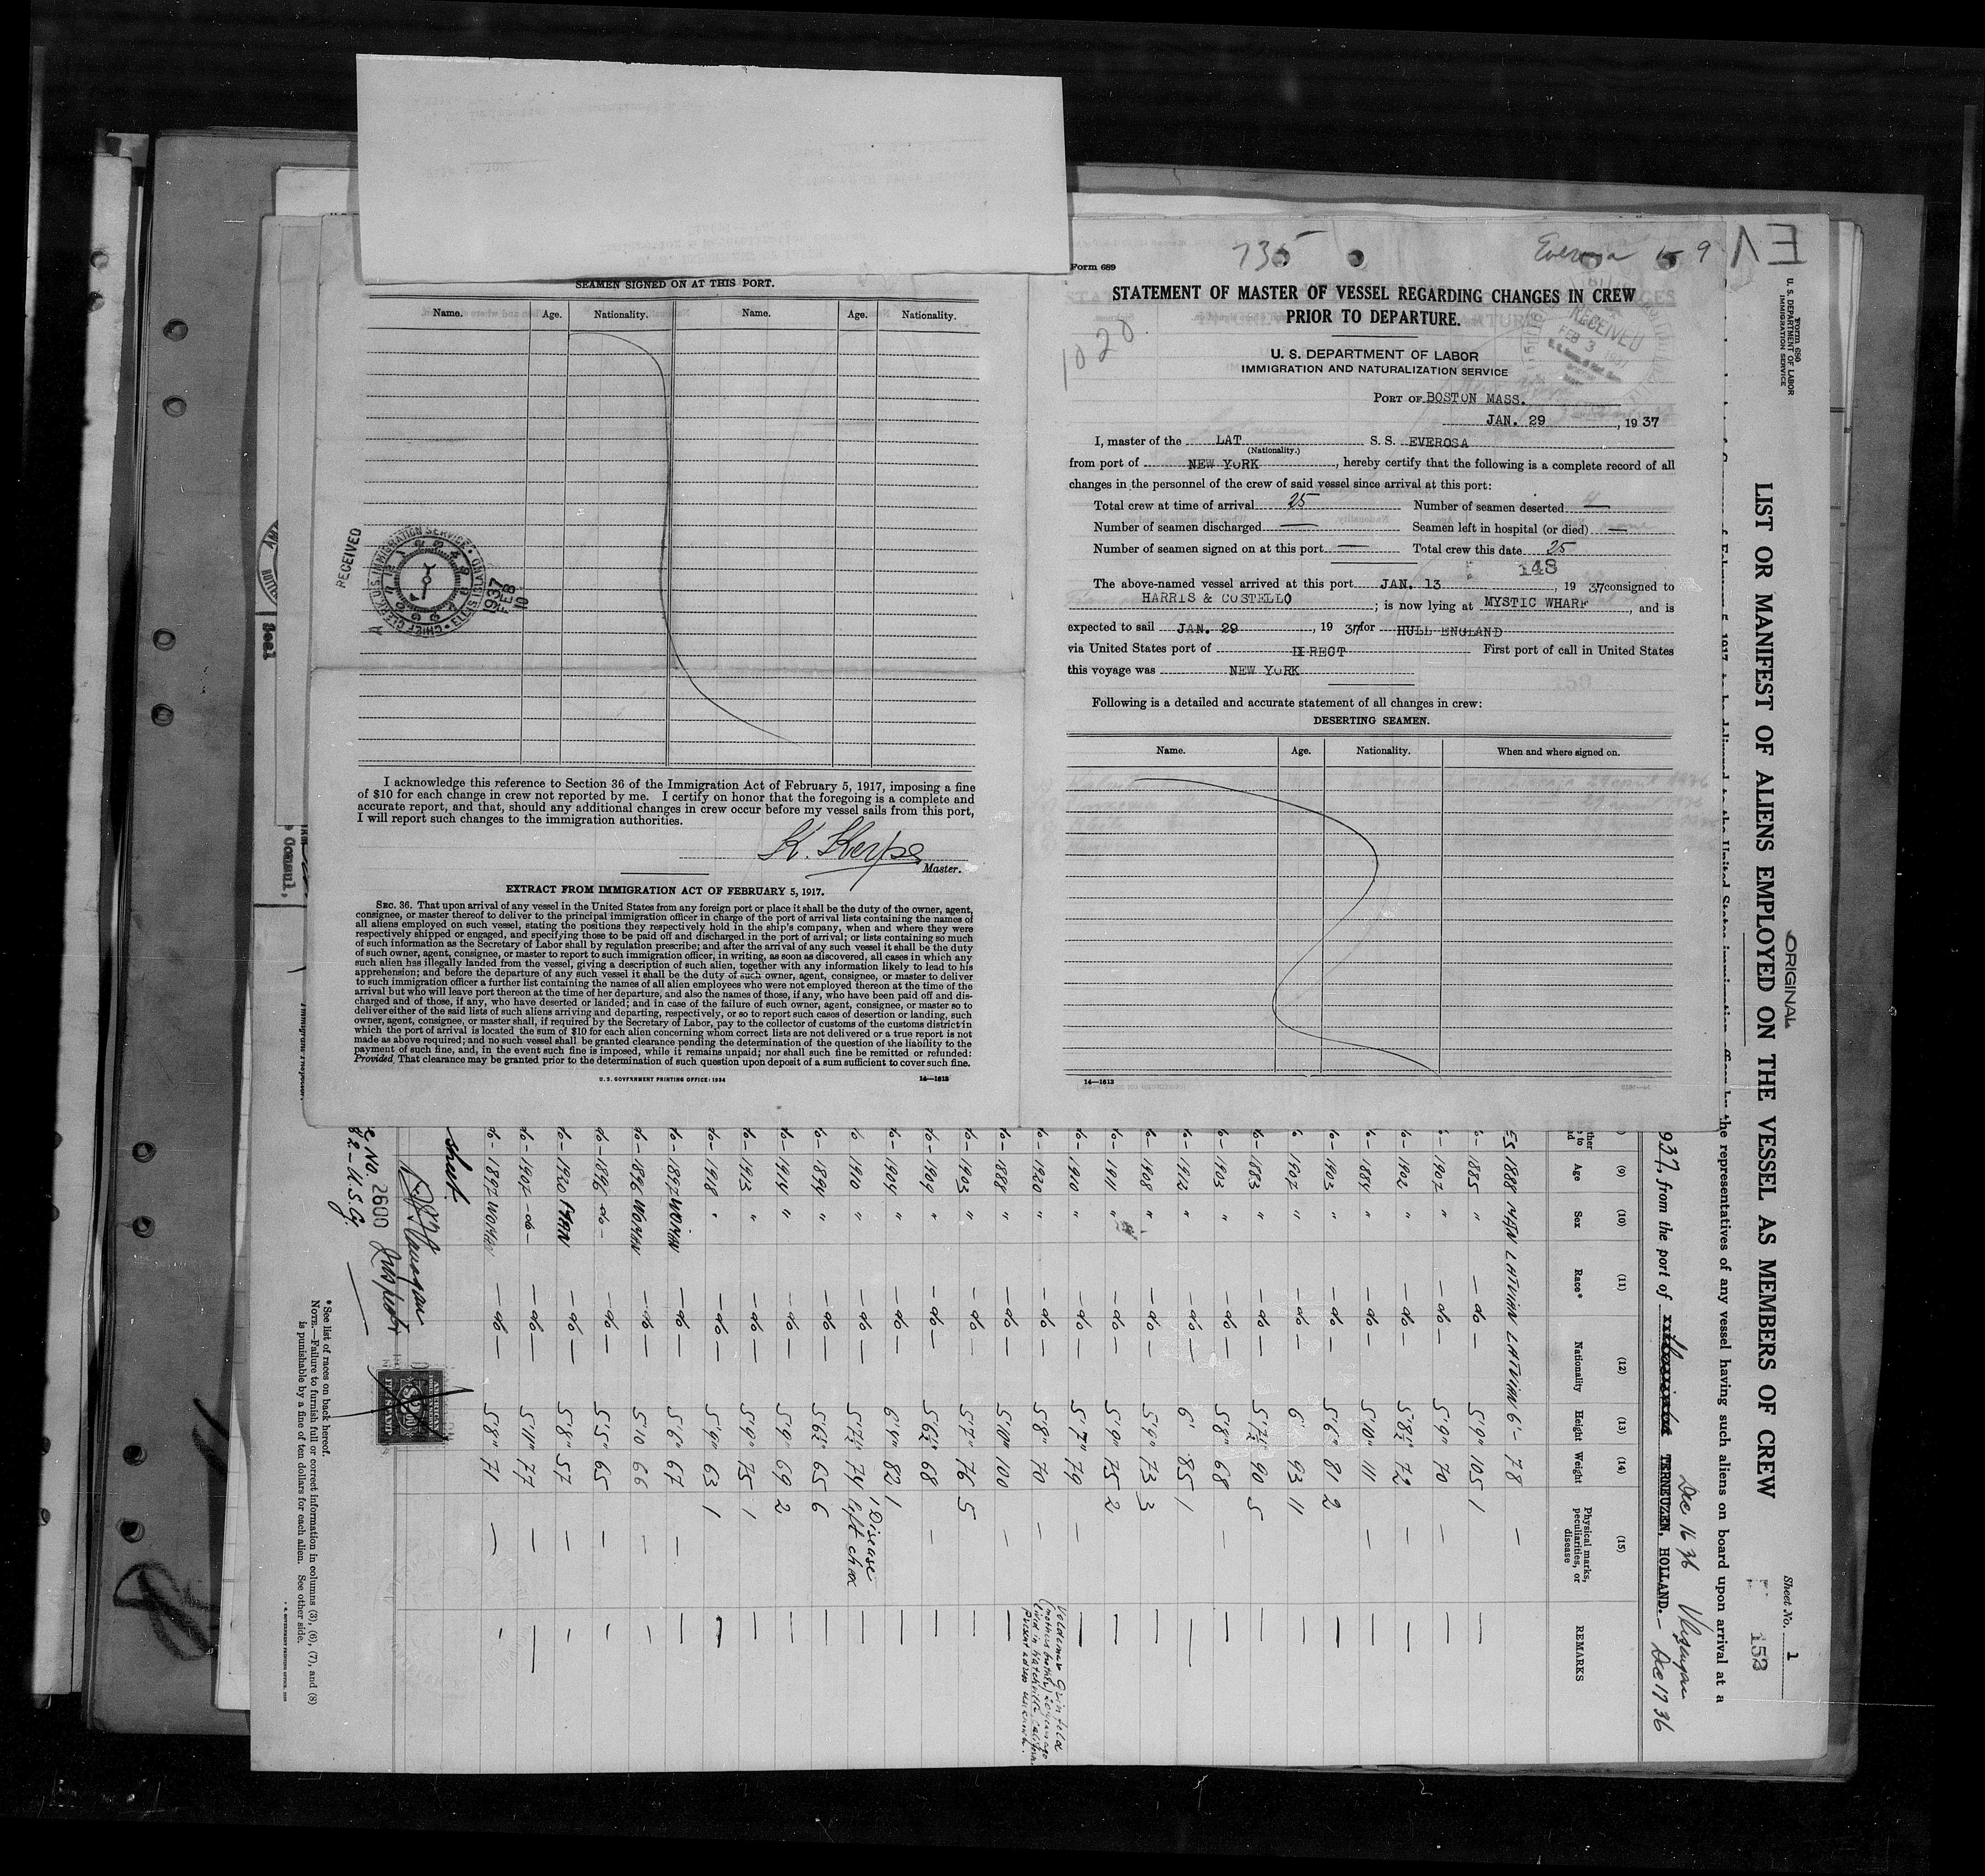 735
Everosa
159
Form 689
STATEMENT OF MASTER OF VESSEL REGARDING CHANGES IN CREW
PRIOR TO DEPARTURE.
1020
RECEIVED
FEB 3 1937
U. S. DEPARTMENT OF LABOR
IMMIGRATION AND NATURALIZATION SERVICE
PORT OF BOSTON MASS.
JAN. 29, 1937
I, master of the LAT S. S. EVEROSA
(Nationality.)
from port of NEW YORK, hereby certify that the following is a complete record of all
changes in the personnel of the crew of said vessel since arrival at this port:
Total crew at time of arrival 25 Number of seamen deserted —
Number of seamen discharged — Seamen left in hospital (or died) —
Number of seamen signed on at this port — Total crew this date 25
148
The above-named vessel arrived at this port JAN. 13, 1937 consigned to
HARRIS & COSTELLO; is now lying at MYSTIC WHARF, and is
expected to sail JAN. 29, 1937 for HULL ENGLAND
via United States port of DIRECT First port of call in United States
this voyage was NEW YORK
Following is a detailed and accurate statement of all changes in crew:
DESERTING SEAMEN.
Name. Age. Nationality. When and where signed on.
14—1613
SEAMEN SIGNED ON AT THIS PORT.
Name. Age. Nationality. Name. Age. Nationality.
RECEIVED
CHIEF CLERK U.S. IMMIGRATION SERVICE
1937 FEB 10
I acknowledge this reference to Section 36 of the Immigration Act of February 5, 1917, imposing a fine
of $10 for each change in crew not reported by me. I certify on honor that the foregoing is a complete and
accurate report, and that, should any additional changes in crew occur before my vessel sails from this port,
I will report such changes to the immigration authorities.
K. Skerps
Master.
EXTRACT FROM IMMIGRATION ACT OF FEBRUARY 5, 1917.
SEC. 36. That upon arrival of any vessel in the United States from any foreign port or place it shall be the duty of the owner, agent,
consignee, or master thereof to deliver to the principal immigration officer in charge of the port of arrival lists containing the names of
all aliens employed on such vessel, stating the positions they respectively hold in the ship's company, when and where they were
respectively shipped or engaged, and specifying those to be paid off and discharged in the port of arrival; or lists containing so much
of such information as the Secretary of Labor shall by regulation prescribe; and after the arrival of any such vessel it shall be the duty
of such owner, agent, consignee, or master to report to such immigration officer, in writing, as soon as discovered, all cases in which any
such alien has illegally landed from the vessel, giving a description of such alien, together with any information likely to lead to his
apprehension; and before the departure of any such vessel it shall be the duty of such owner, agent, consignee, or master to deliver
to such immigration officer a further list containing the names of all alien employees who were not employed thereon at the time of the
arrival but who will leave port thereon at the time of her departure, and also the names of those, if any, who have been paid off and dis-
charged and of those, if any, who have deserted or landed; and in case of the failure of such owner, agent, consignee, or master so to
deliver either of the said lists of such aliens arriving and departing, respectively, or so to report such cases of desertion or landing, such
owner, agent, consignee, or master shall, if required by the Secretary of Labor, pay to the collector of customs of the customs district in
which the port of arrival is located the sum of $10 for each alien concerning whom correct lists are not delivered or a true report is not
made as above required; and no such vessel shall be granted clearance pending the determination of the question of the liability to the
payment of such fine, and, in the event such fine is imposed, while it remains unpaid; nor shall such fine be remitted or refunded:
Provided, That clearance may be granted prior to the determination of such question upon deposit of a sum sufficient to cover such fine.
U. S. GOVERNMENT PRINTING OFFICE: 1934 14—1613
EV
Form 680
U. S. DEPARTMENT OF LABOR
IMMIGRATION SERVICE
ORIGINAL
Sheet No. 1
153
LIST OR MANIFEST OF ALIENS EMPLOYED ON THE VESSEL AS MEMBERS OF CREW
the representatives of any vessel having such aliens on board upon arrival at a
Dec 16 36
937, from the port of TERNEUZEN, HOLLAND. - Dec 17 36
(9) (10) (11) (12) (13) (14) (15)
Age Sex Race* Nationality Height Weight Physical marks, peculiarities, or disease REMARKS
1888 MAN LATVIAN LATVIAN 6' - 78 —
1885 " — do — 5'9" 105 1 —
1907 " — do — 5'9" 70 — —
1902 " — do — 5'8½ 72 — —
1884 " — do — 5'10" 111 — —
1903 " — do — 5'6" 81 2 —
1907 " — do — 6' 93 11 —
1883 " — do — 5'7½ 90 5 —
1903 " — do — 5'8" 68 — —
1912 " — do — 6' 85 1 —
1908 " — do — 5'9" 73 3 —
1911 " — do — 5'9" 75 2 —
1910 " — do — 5'7" 79 — —
1920 " — do — 5'8" 70 —
1888 " — do — 5'10" 100 — —
1903 " — do — 5'7" 76 5 —
1909 " — do — 5'6½" 68 — —
1904 " — do — 6'4" 82 1 —
1910 " — do — 5'7½ 74 1 Disease left
1894 " — do — 5'6½" 65 6 —
1914 " — do — 5'9" 69 2 —
1913 " — do — 5'9" 75 1 —
1918 " — do — 5'9" 63 1 —
1897 WOMAN — do — 5'6" 67 — —
1896 WOMAN — do — 5'10 66 — —
1896 - do - — do — 5'5" 65 — —
1920 MAN — do — 5'8" 57 — —
1907 - do - — do — 5'11" 77 — —
1897 WOMAN — do — 5'8" 71 — —
(mothers brother) 20 years ago
sheet.
Inspector
No. 2600
82 - U.S.G.
$2.00
* See list of races on back hereof.
NOTE.—Failure to furnish full or correct information in columns (3), (6), (7), and (8)
is punishable by a fine of ten dollars for each alien. See other side.
Consul,
Seel
Immigrant Inspector.